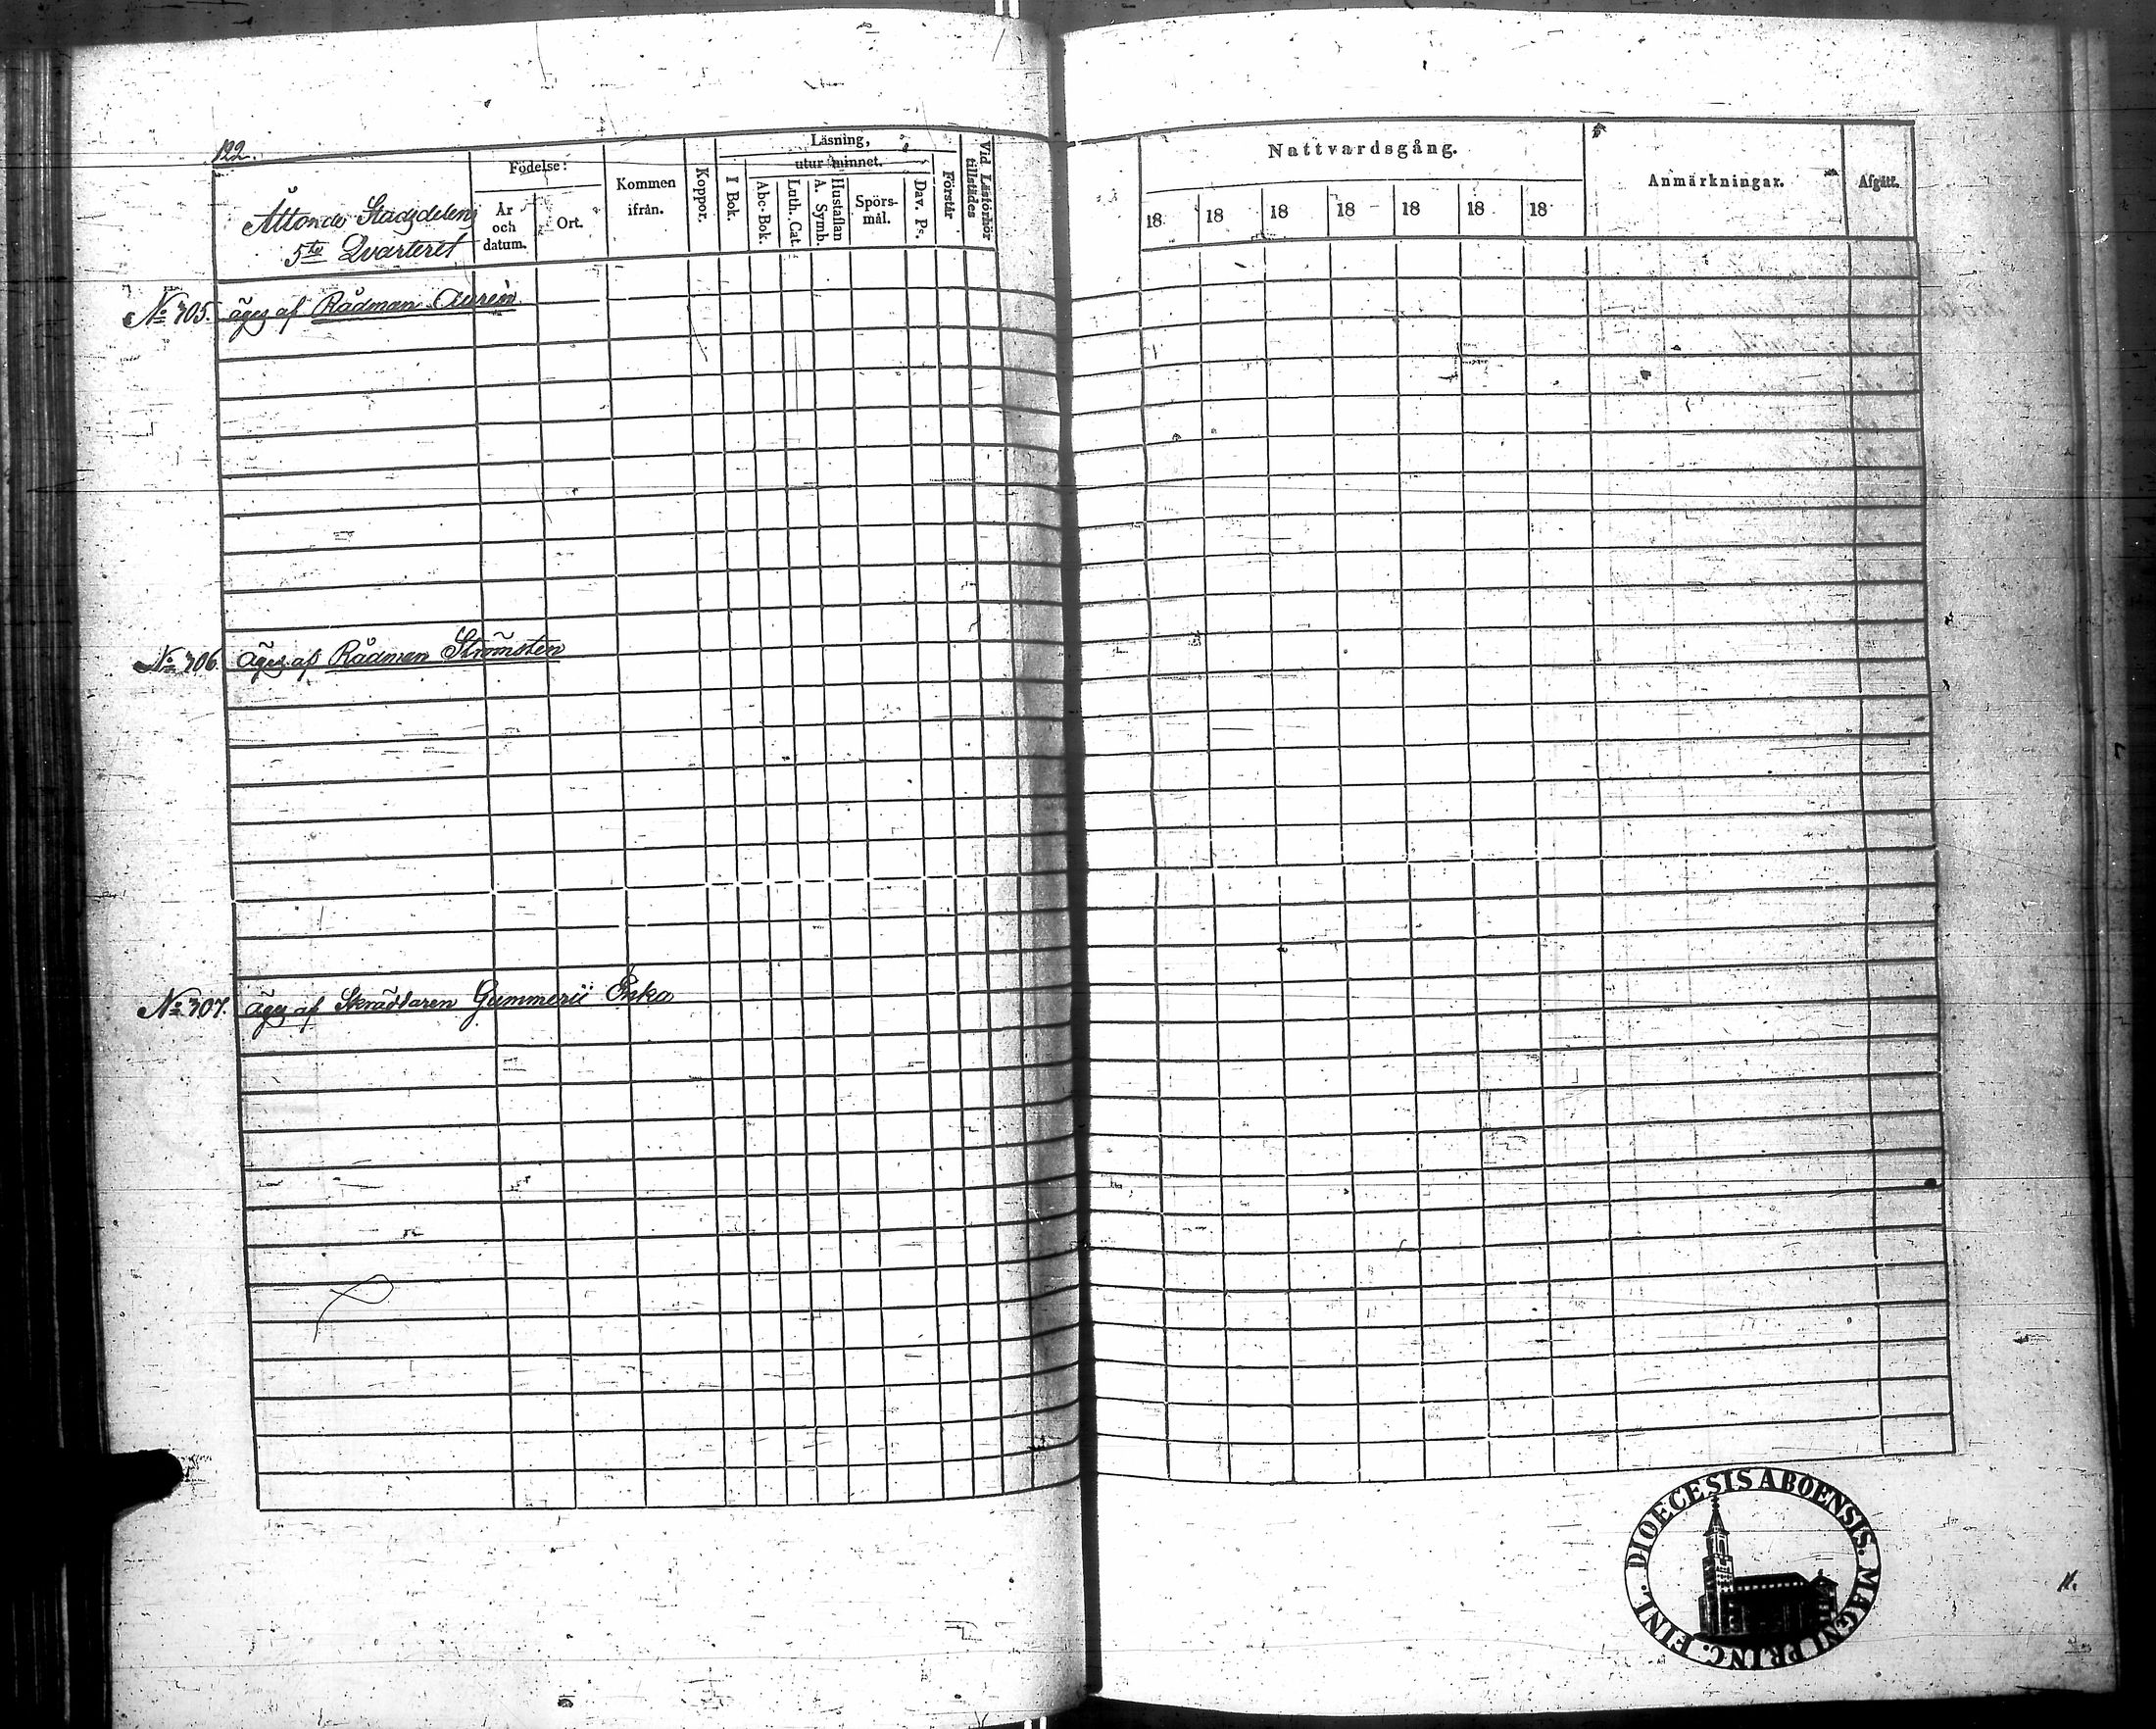 122.
Åttonde Stadsdelens
5te Qvarteret
Födelse:
År
och
datum.
Ort.
Kommen
ifrån.
Koppor.
Läsning,
I Bok.
utur minnet.
Abc-Bok.
Luth. Cat.
A. Symb.
Hustaflan
Spörs-
mål.
Dav. Ps.
Förstår
Vid Läsförhör
tillstädes
Nattvardsgång.
18 18 18 18 18 18 18
Anmärkningar.
Afgått.
No 305. äges af Rådman Aurén
No 306. äges af Rådman Strömsten
No 307. äges af Skräddaren Gummerii Enka
DIOECESIS ABOENSIS. MAGNI PRINC. FINL.